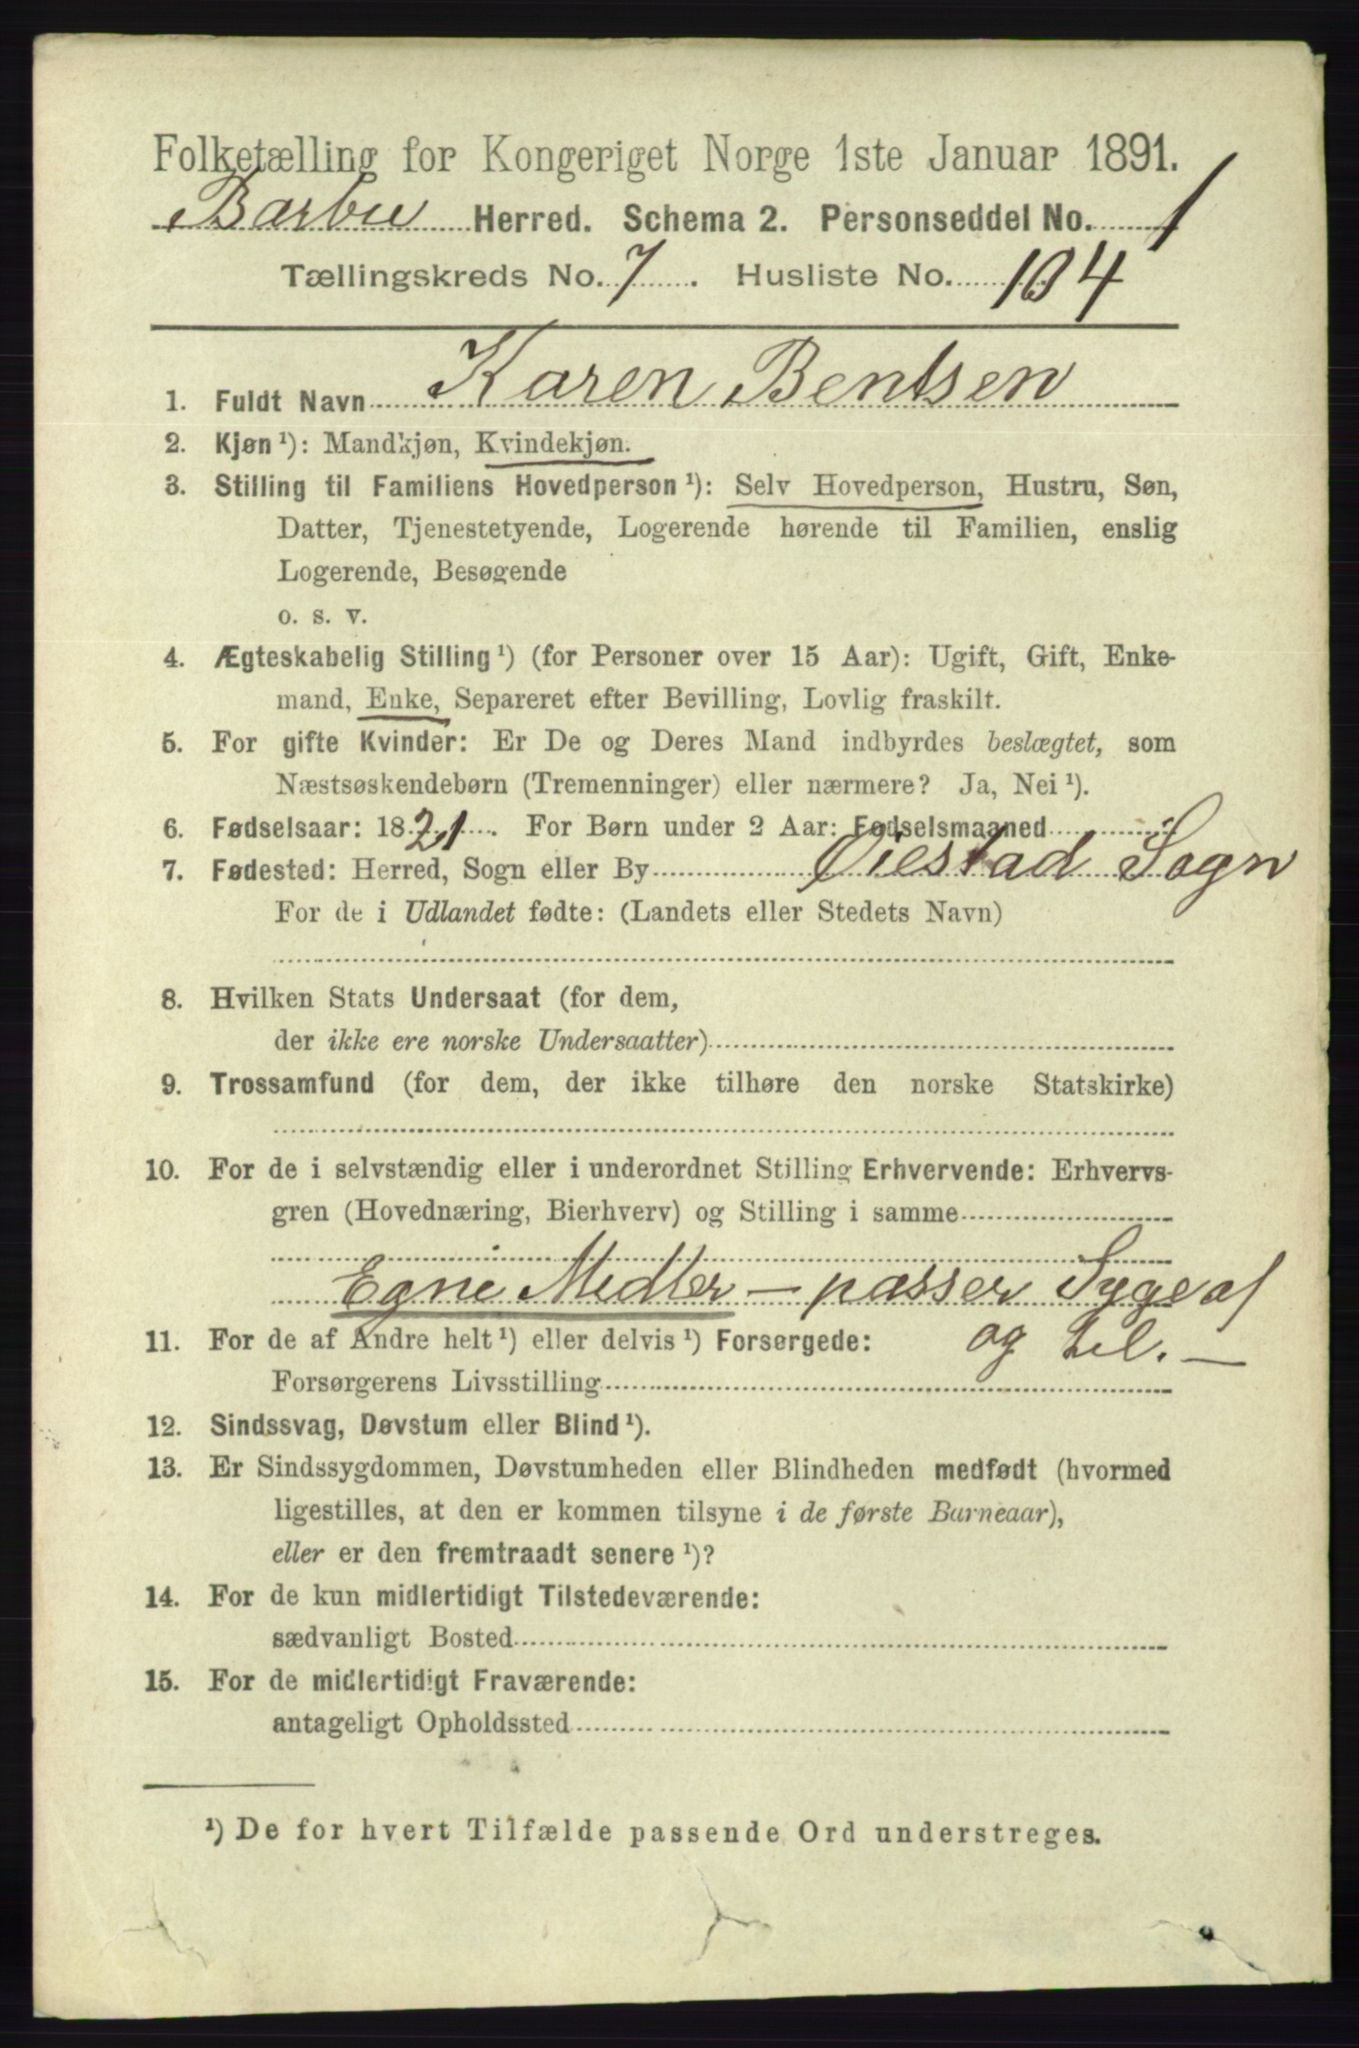 Folketælling for Kongeriget Norge 1ste Januar 1891.
Barbu Herred. Schema 2. Personseddel No. 1
Tællingskreds No. 7. Husliste No. 104
1. Fuldt Navn Karen Bentsen
2. Kjøn ¹): Mandkjøn, Kvindekjøn.
3. Stilling til Familiens Hovedperson ¹): Selv Hovedperson, Hustru, Søn,
Datter, Tjenestetyende, Logerende hørende til Familien, enslig
Logerende, Besøgende
o. s. v.
4. Ægteskabelig Stilling ¹) (for Personer over 15 Aar): Ugift, Gift, Enke-
mand, Enke, Separeret efter Bevilling, Lovlig fraskilt.
5. For gifte Kvinder: Er De og Deres Mand indbyrdes beslægtet, som
Næstsøskendebørn (Tremenninger) eller nærmere? Ja, Nei ¹).
6. Fødselsaar: 1821. For Børn under 2 Aar: Fødselsmaaned
7. Fødested: Herred, Sogn eller By Øiestad Sogn
For de i Udlandet fødte: (Landets eller Stedets Navn)
8. Hvilken Stats Undersaat (for dem,
der ikke ere norske Undersaatter)
9. Trossamfund (for dem, der ikke tilhøre den norske Statskirke)
10. For de i selvstændig eller i underordnet Stilling Erhvervende: Erhvervs-
gren (Hovednæring, Bierhverv) og Stilling i samme
Egne Midler - passer Syge af
og til. -
11. For de af Andre helt ¹) eller delvis ¹) Forsørgede:
Forsørgerens Livsstilling
12. Sindssvag, Døvstum eller Blind ¹).
13. Er Sindssygdommen, Døvstumheden eller Blindheden medfødt (hvormed
ligestilles, at den er kommen tilsyne i de første Barneaar),
eller er den fremtraadt senere ¹)?
14. For de kun midlertidigt Tilstedeværende:
sædvanligt Bosted
15. For de midlertidigt Fraværende:
antageligt Opholdssted
¹) De for hvert Tilfælde passende Ord understreges.